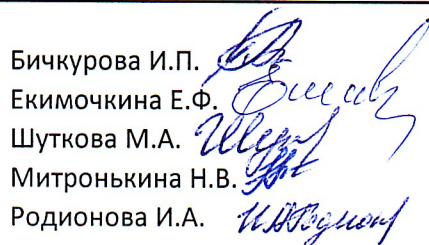 Бичкурова И.П.
Екимочкина Е.Ф.
Шуткова М.А.
Митронькина Н.В.
Родионова И.А.